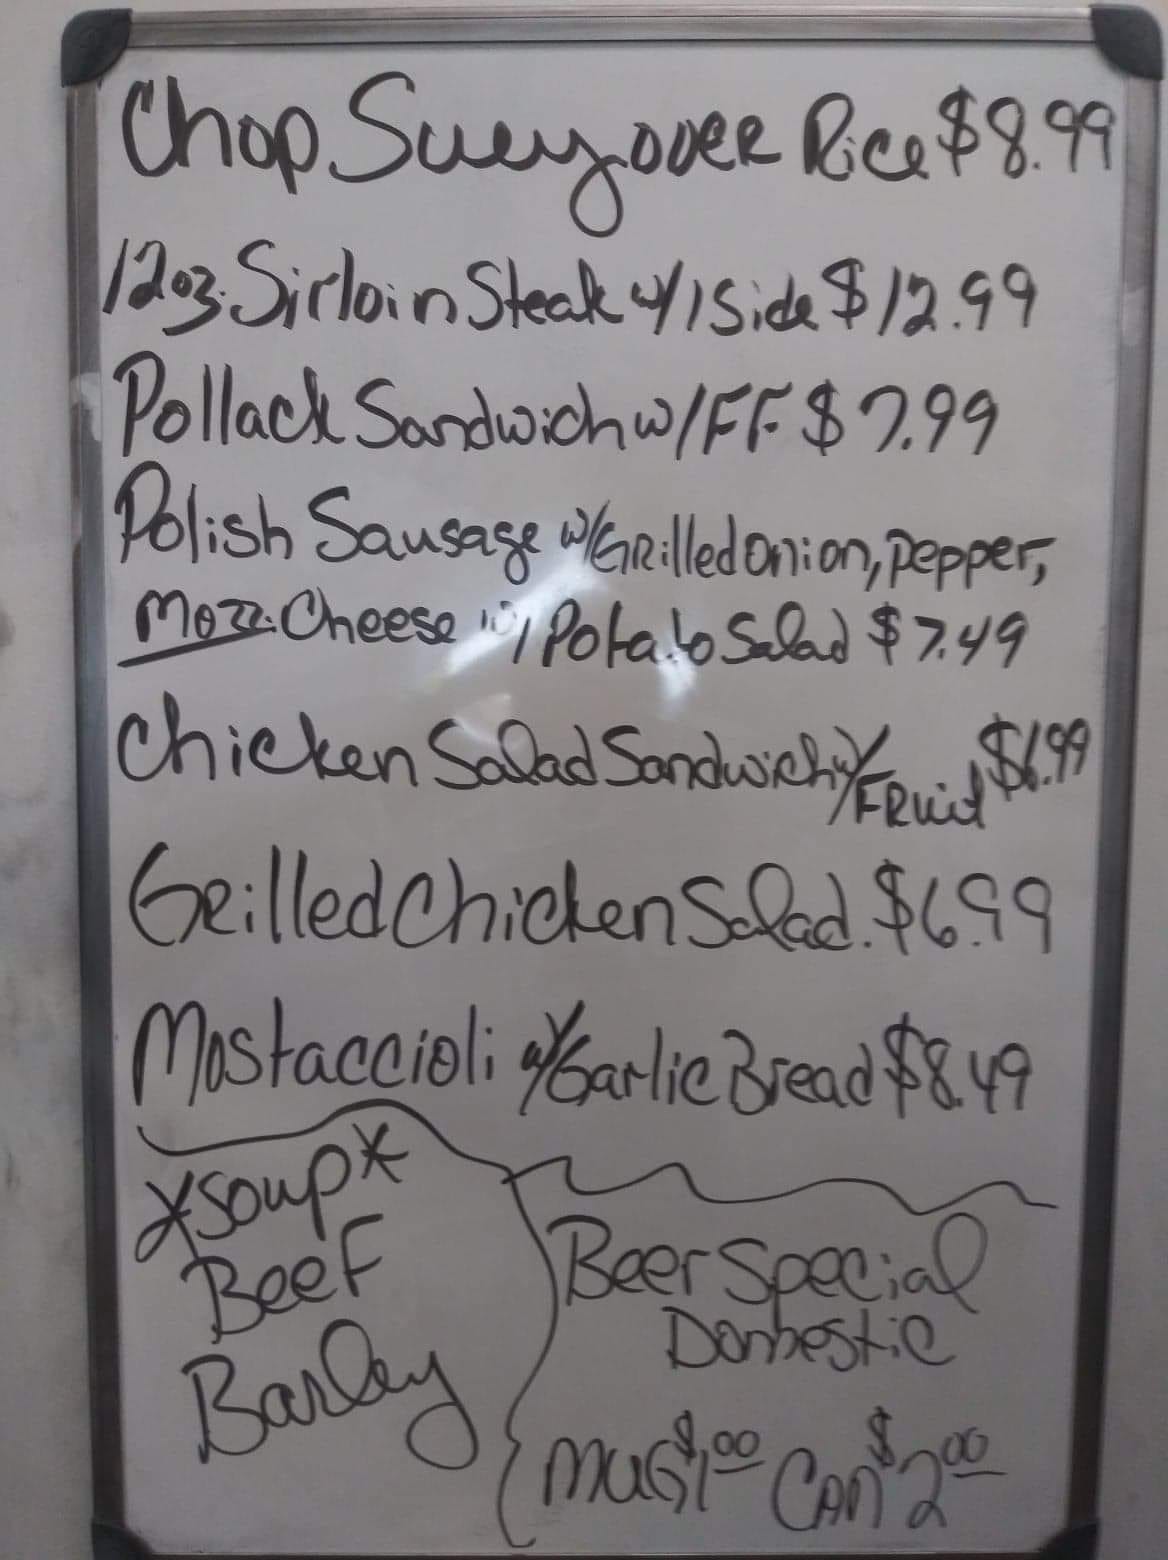 Chop Suey over Rice $8.99
12oz. Sirloin Steak w/1 Side $12.99
Pollack Sandwich w/FF $7.99
Polish Sausage w/Grilled Onion, Pepper,
Mozz. Cheese w/Potato Salad $7.49
Chicken Salad Sandwich w/Fruit $6.99
Grilled Chicken Salad. $6.99
Mostaccioli w/Garlic Bread $8.49
*Soup*
Beef
Barley
Beer Special
Domestic
Mug $1.00 Can $2.00